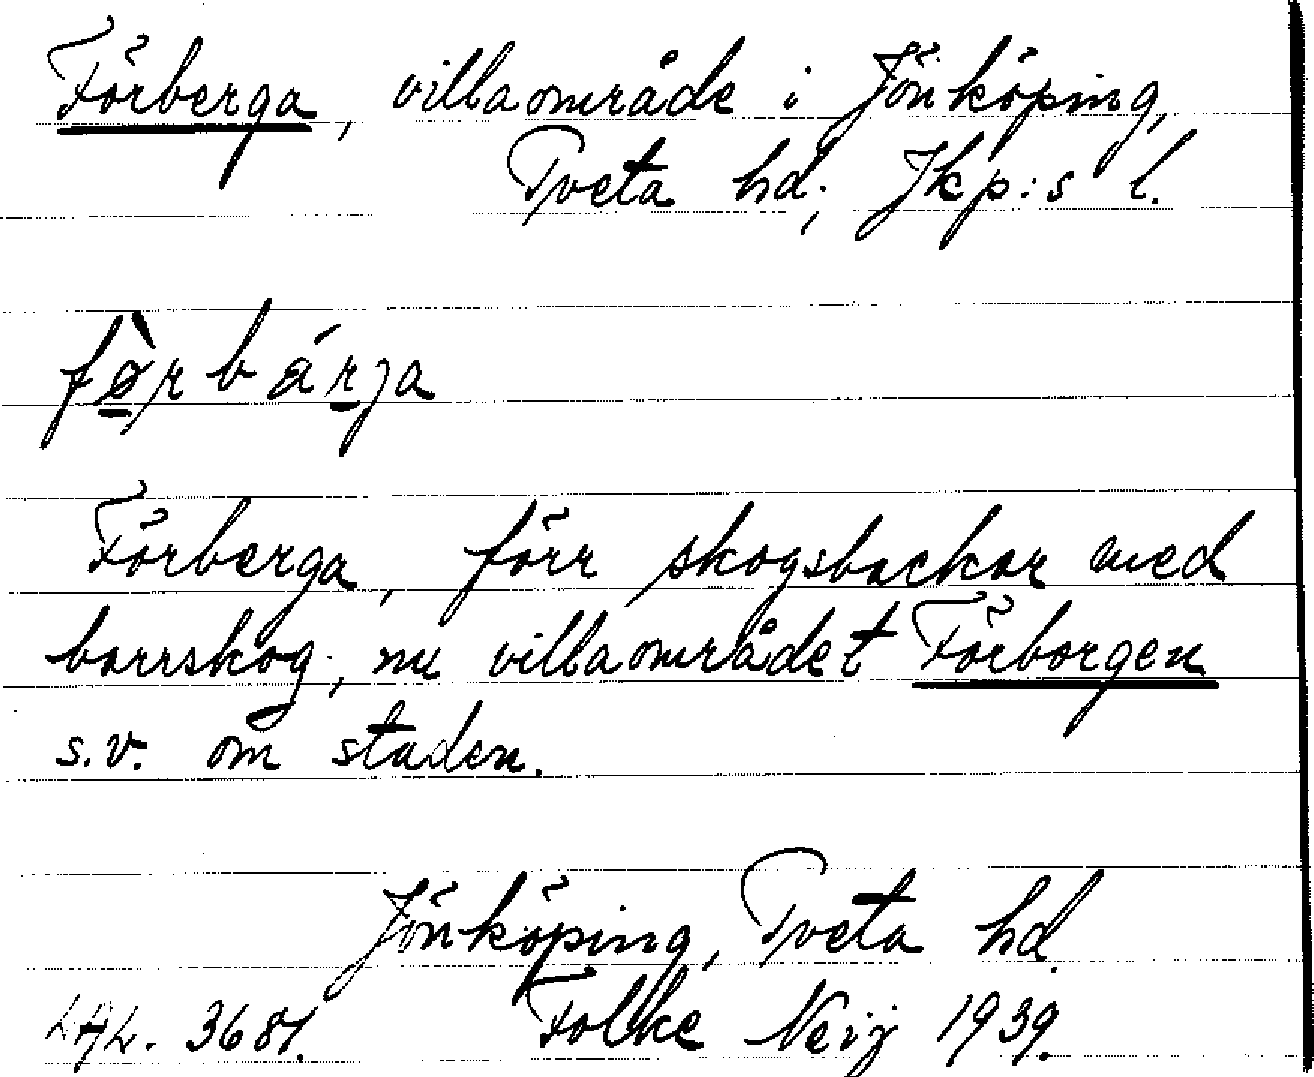 Förberga, villaområde i Jönköping,
Tveta hd., Jkp:s l.
fø̀rbárja
Förberga, förr skogsbackar med
barrskog; nu villaområdet Förborgen
s.v. om staden.
Jönköping, Tveta hd.
LAL. 3681. Folke Neij 1939.